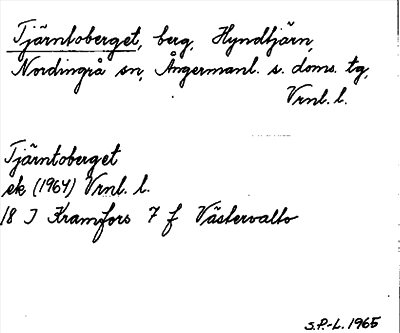 Tjärntoberget, berg, Hyndtjärn,
Nordingrå sn, Ångermanl. s. doms. tg,
Vrnl. l.
Tjärntoberget
ek (1964) Vrnl. l.
18 I Kramfors 7 f Västervalto
S.P.-L. 1965